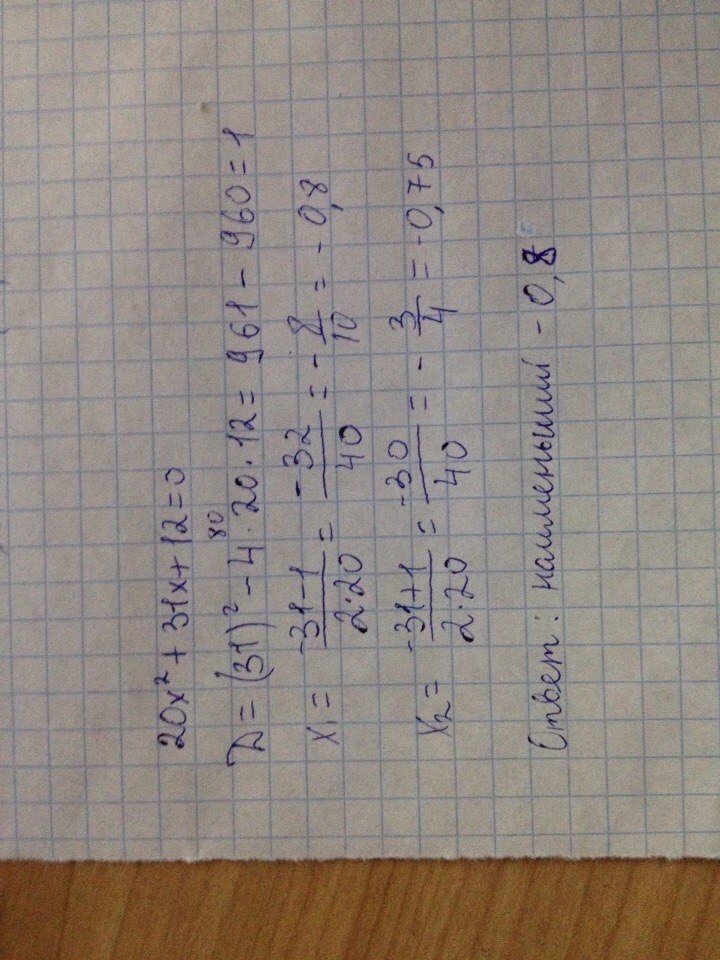 20x² + 31x + 12 = 0
D = (31)² - 4 · 20 · 12 = 961 - 960 = 1
80
x₁ = (-31-1)/(2·20) = -32/40 = -8/10 = -0,8
x₂ = (-31+1)/(2·20) = -30/40 = -3/4 = -0,75
Ответ: наименьший -0,8